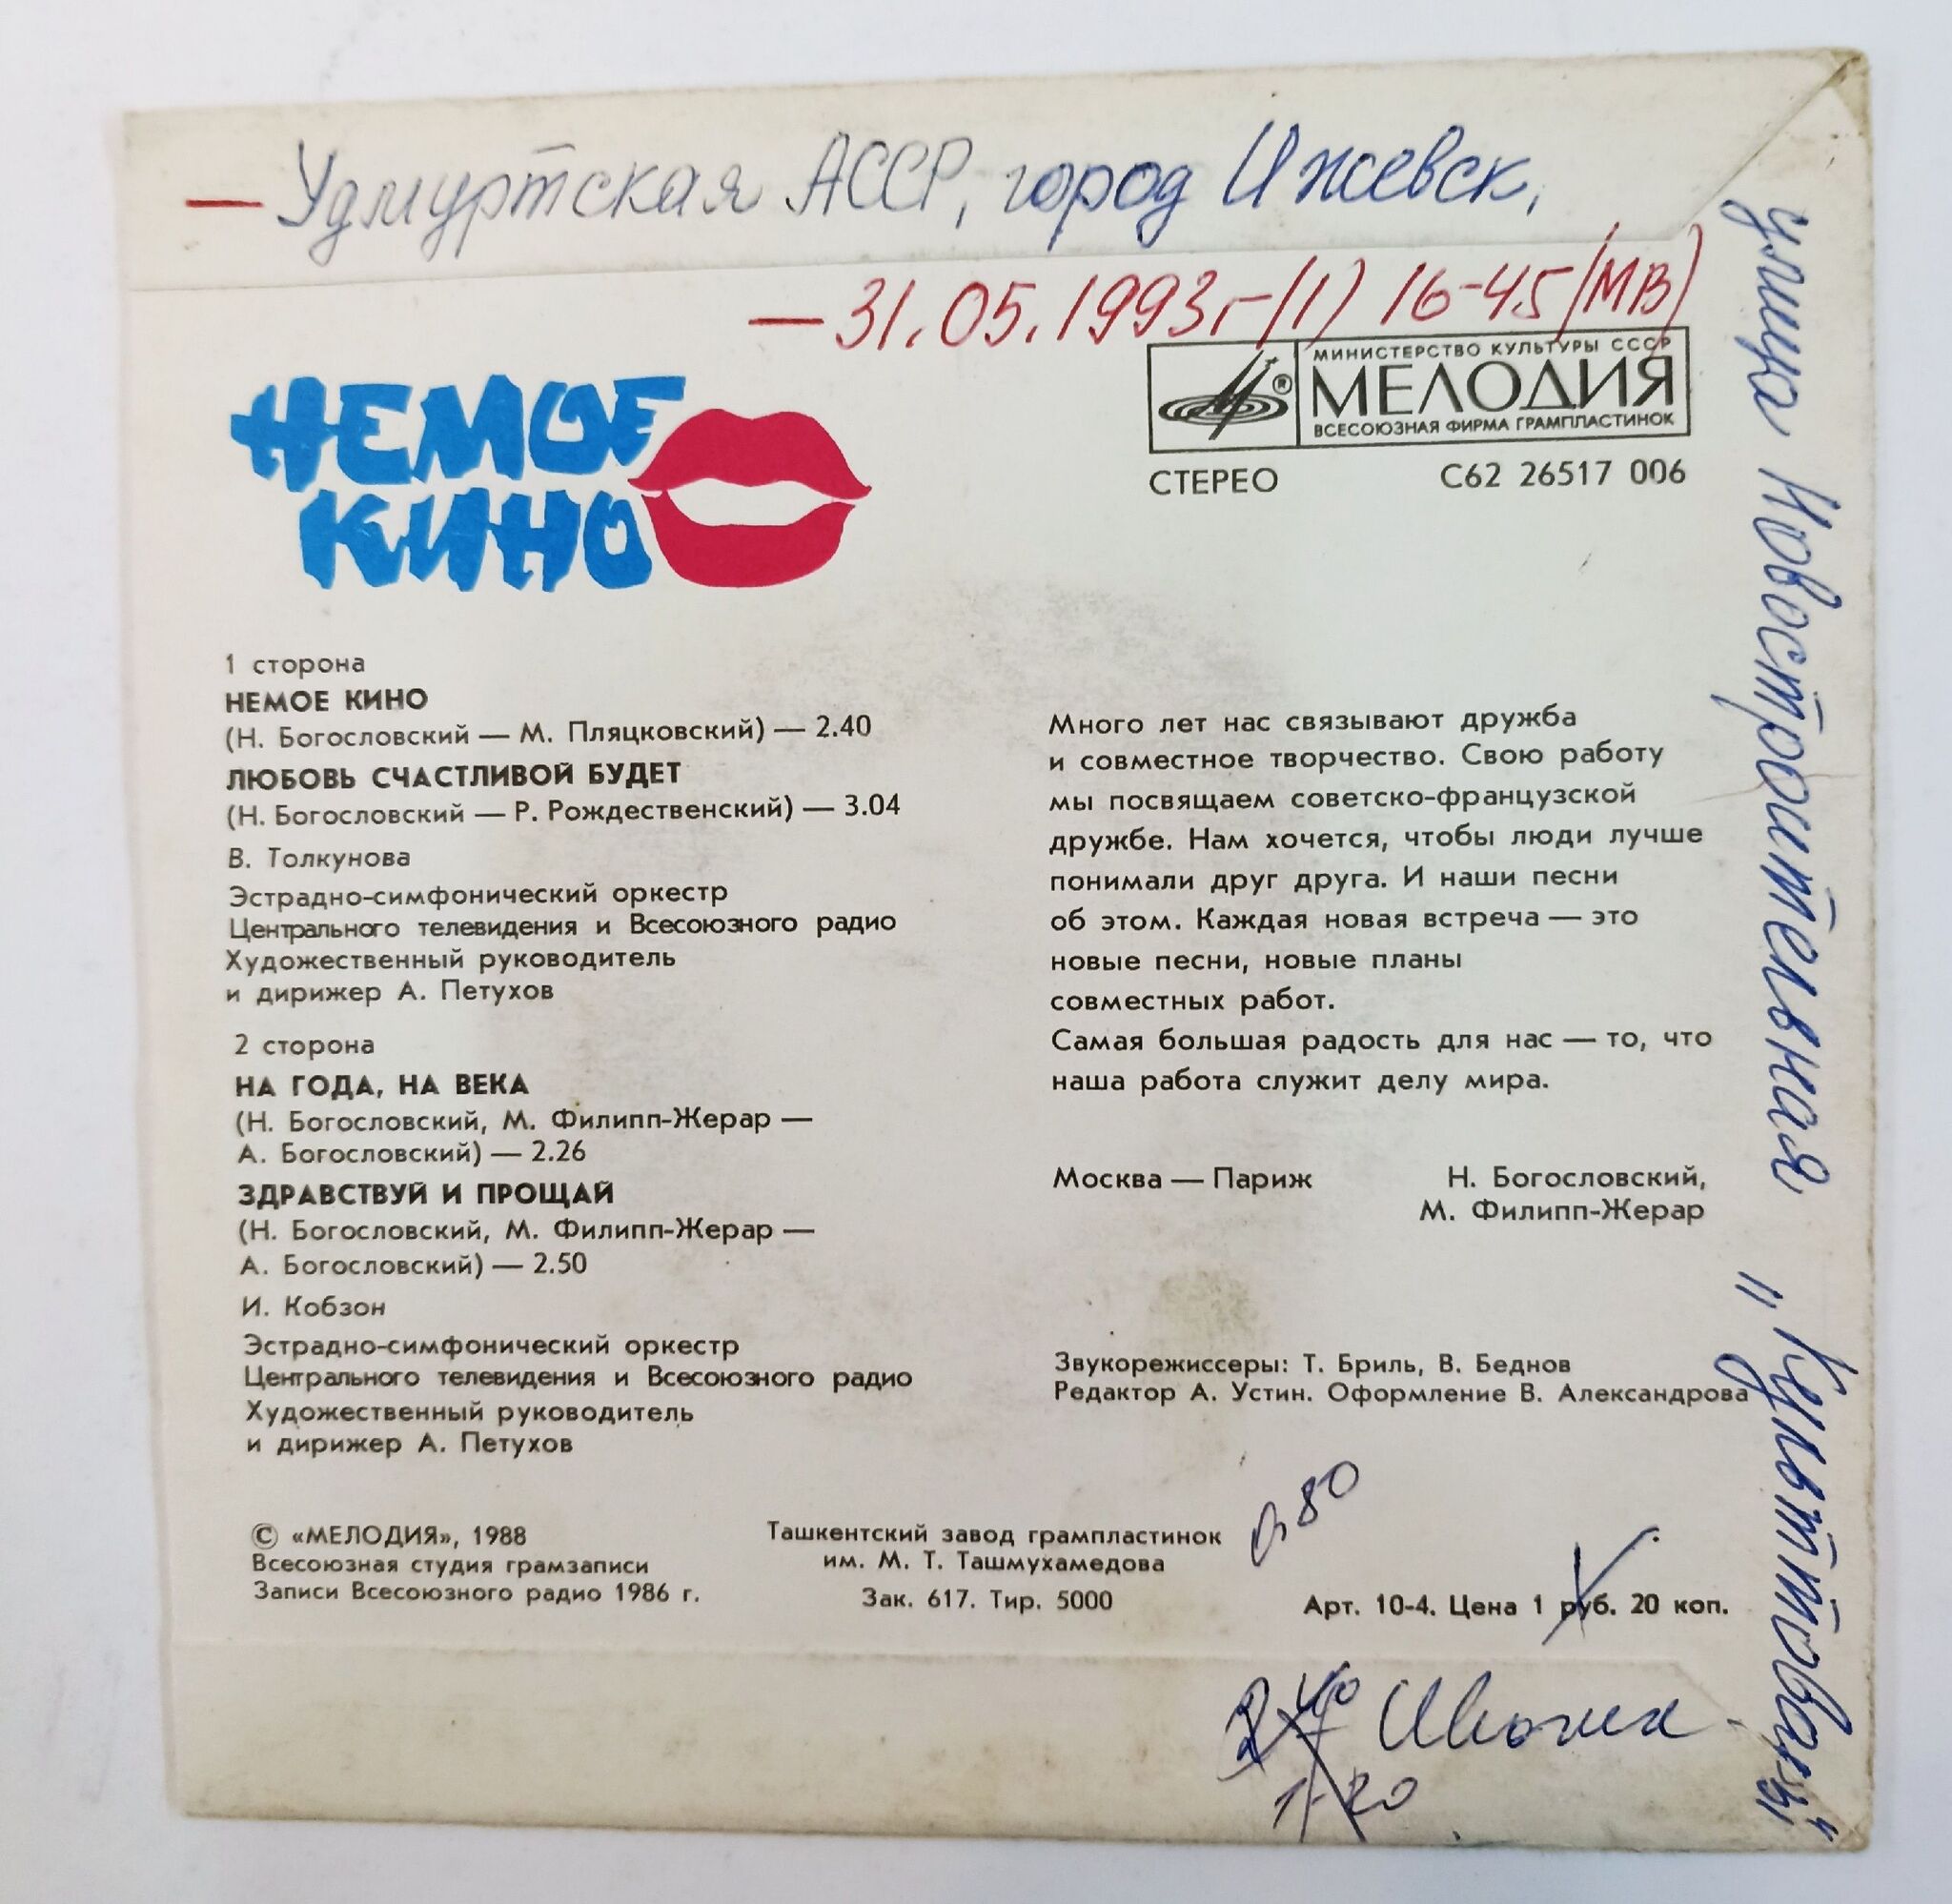 — Удмуртская АССР, город Ижевск,
улица Новостроительная "Культтовары"
— 31.05.1993г-(1) 16-45(МВ)
НЕМОЕ
КИНО
МИНИСТЕРСТВО КУЛЬТУРЫ СССР
МЕЛОДИЯ
ВСЕСОЮЗНАЯ ФИРМА ГРАМПЛАСТИНОК
СТЕРЕО С62 26517 006
1 сторона
НЕМОЕ КИНО
(Н. Богословский — М. Пляцковский) — 2.40
ЛЮБОВЬ СЧАСТЛИВОЙ БУДЕТ
(Н. Богословский — Р. Рождественский) — 3.04
В. Толкунова
Эстрадно-симфонический оркестр
Центрального телевидения и Всесоюзного радио
Художественный руководитель
и дирижер А. Петухов
2 сторона
НА ГОДА, НА ВЕКА
(Н. Богословский, М. Филипп-Жерар —
А. Богословский) — 2.26
ЗДРАВСТВУЙ И ПРОЩАЙ
(Н. Богословский, М. Филипп-Жерар —
А. Богословский) — 2.50
И. Кобзон
Эстрадно-симфонический оркестр
Центрального телевидения и Всесоюзного радио
Художественный руководитель
и дирижер А. Петухов
Много лет нас связывают дружба
и совместное творчество. Свою работу
мы посвящаем советско-французской
дружбе. Нам хочется, чтобы люди лучше
понимали друг друга. И наши песни
об этом. Каждая новая встреча — это
новые песни, новые планы
совместных работ.
Самая большая радость для нас — то, что
наша работа служит делу мира.
Москва — Париж Н. Богословский,
М. Филипп-Жерар
Звукорежиссеры: Т. Бриль, В. Беднов
Редактор А. Устин. Оформление В. Александрова
0,80
© «МЕЛОДИЯ», 1988
Всесоюзная студия грамзаписи
Записи Всесоюзного радио 1986 г.
Ташкентский завод грампластинок
им. М. Т. Ташмухамедова
Зак. 617. Тир. 5000
Арт. 10-4. Цена 1 руб. 20 коп.
1-20